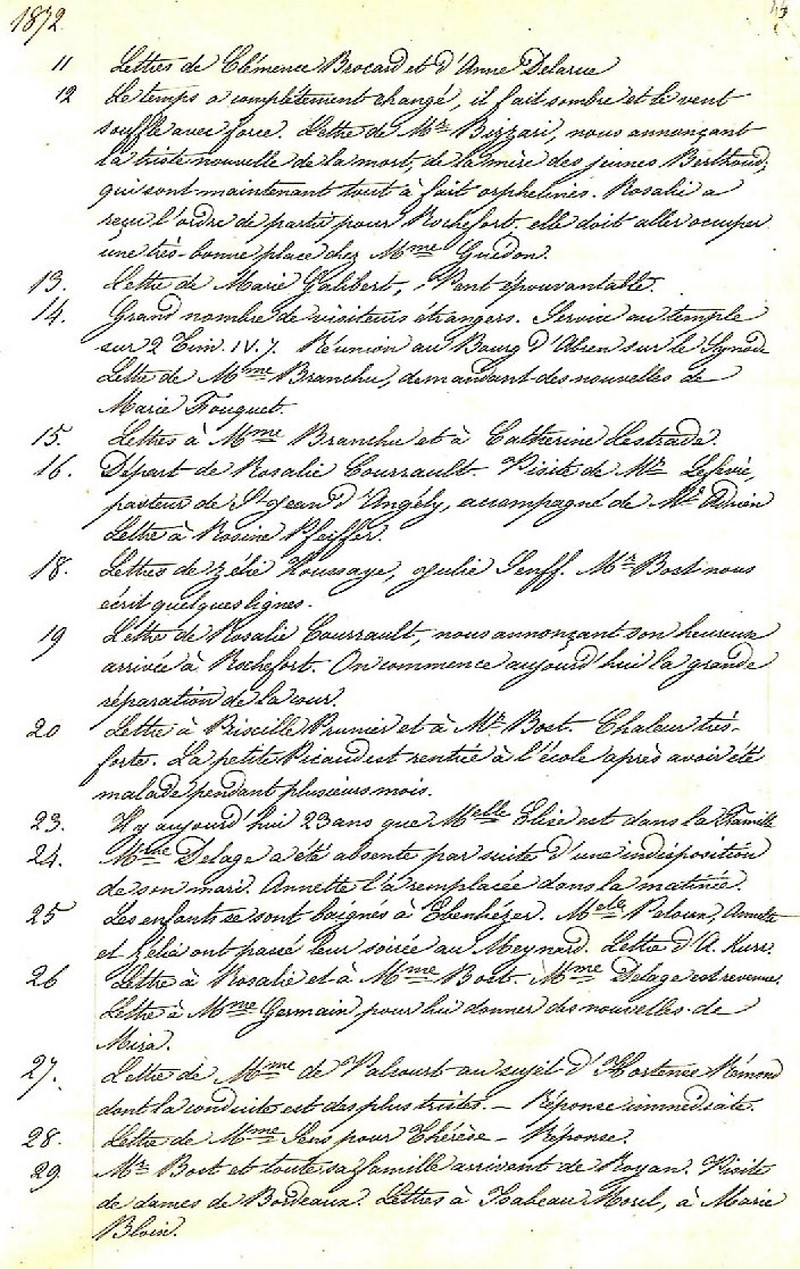 1872.
11 Lettres de Clémence Brocard et d'Anne Delarue
12 Le temps a complètement changé, il fait sombre et le vent
souffle avec force. Lettre de Mr Bizzari, nous annonçant
la triste nouvelle de la mort, de la mère des jeunes Berthoud,
qui sont maintenant tout à fait orphelines. Rosalie a
reçu l'ordre de partir pour Rochefort. elle doit aller occuper
une très-bonne place chez Mme Guédon.
13. Lettre de Marie Galibert, Vent épouvantable.
14. Grand nombre de visiteurs étrangers. Service au temple
sur 2 Tim. IV. 7. Réunion au Bourg d'Abren sur le Synode
Lettre de Mme Branchu, demandant des nouvelles de
Marie Fouguet.
15. Lettres à Mme Branchu et à Catherine Lestrade.
16. Départ de Rosalie Courrault. Visite de Mr
pasteur de St Jean d'Angély, accompagné de Mr Adrien
Lettre à Rosine Pfeiffer.
18. Lettres de Zélie Houssaye, Julie Senff. Mr Bost nous
écrit quelques lignes.
19 Lettre de Rosalie Courrault, nous annonçant son heureuse
arrivée à Rochefort. On commence aujourd'hui la grande
réparation de la cour.
20 Lettre à Priscille Prunier et à Mr Bost. Chaleur très-
forte. La petite Picaud est rentrée à l'école après avoir été
malade pendant plusieurs mois.
23. Il y aujourd'hui 23 ans que Melle Elise est dans la Famille
24. Mme Delage a été absente par suite d'une indisposition
de son mari. Annette l'a remplacée dans la matinée.
25 Les enfants se sont baignés à Ebenhézer. Melle Paloux, Annette
et Zélie ont passé leur soirée au Meynard. Lettre d'A. Kurr.
26 Lettre à Rosalie et à Mme Bost. Mme Delage est revenue.
Lettre à Mme Germain pour lui donner des nouvelles de
Mira.
27. Lettre de Mme de Valcourt au sujet d'Hortense Rémond
dont la conduite est des plus tristes. – Réponse immédiate.
28. Lettre de Mme Sens pour Thérèse – Réponse.
29. Mr Bost et toute sa famille arrivent de Royan. Visite
de dames de Bordeaux. Lettres à Isabeau Morel, à Marie
Bloin.